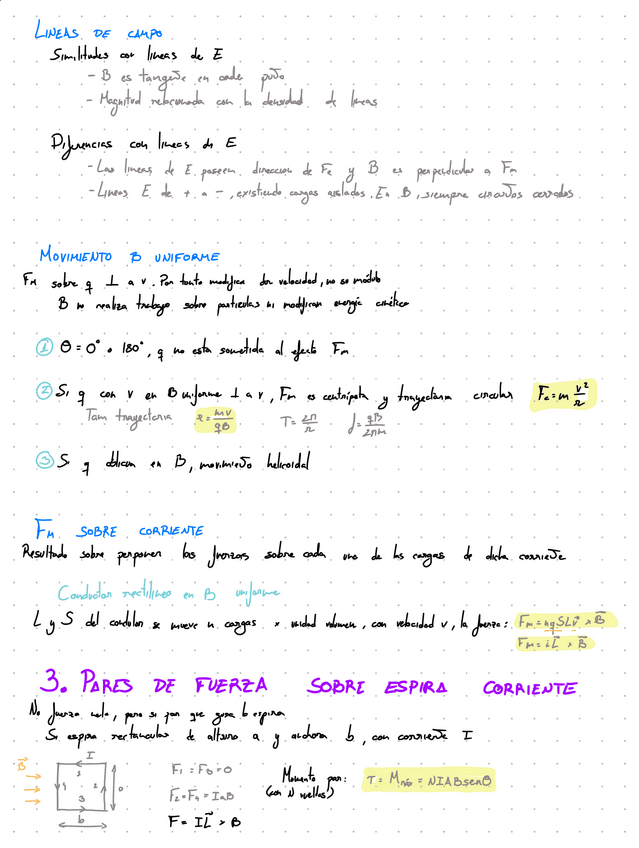 LINEAS DE CAMPO
Similitudes con lineas de E
- B es tangente en cada punto
- Magnitud relacionada con la densidad de lineas
Diferencias con lineas de E
- Las lineas de E poseen direccion de Fe y B es perpendicular a Fm
- Lineas E de + a -, existiendo cargas aisladas. En B, siempre circuitos cerrados
MOVIMIENTO B UNIFORME
FM sobre q ⊥ a v. Por tanto modifica dir velocidad, no su módulo
B no realiza trabajo sobre particulas ni modifican energía cinética
① θ = 0° o 180°, q no esta sometida al efecto Fm
② Si q con v en B uniforme ⊥ a v, Fm es centrípeta y trayectoria circular Fc = m v²/r
Tam trayectoria r = mv/qB T = 2π/r f = qB/2πm
③ Si q oblicua en B, movimiento helicoidal
FM SOBRE CORRIENTE
Resultado sobre ponen las fuerzas sobre cada una de las cargas de dicha corriente
Conductor rectilineo en B uniforme
L y S del conductor se mueve n cargas x unidad volumen, con velocidad v, la fuerza: Fm = nqSLv⃗ × B⃗
Fm = iL⃗ × B⃗
3. PARES DE FUERZA SOBRE ESPIRA CORRIENTE
No fuerza neta, pero si par que gira la espira
Si espira rectangular de altura a y anchura b, con corriente I
B⃗ I 1 4 2 3 a b
F1 = F3 = 0
F⃗2 = F4 = IaB
F = IL⃗ × B
Momento par: τ = Mmáx = NIABsenθ
(con N vueltas)